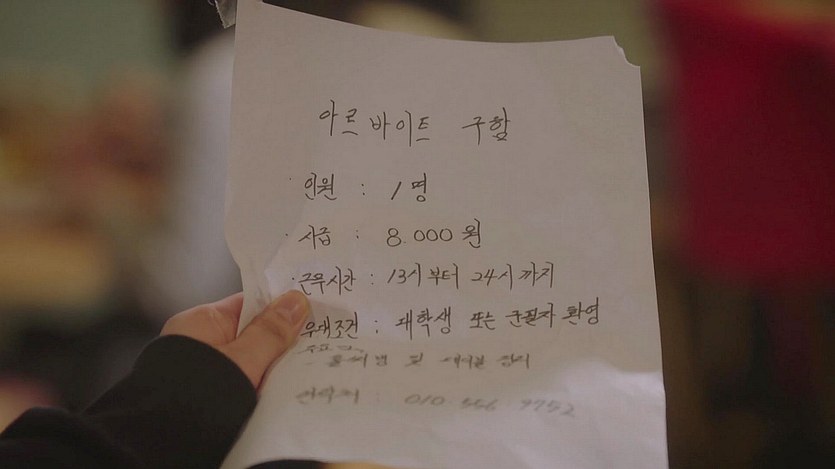 아르바이트 구함
· 인원 : 1명
· 시급 : 8.000원
· 근무시간 : 13시부터 24시까지
우대조건 : 대학생 또는 군필자 환영
및
연락처 : 010